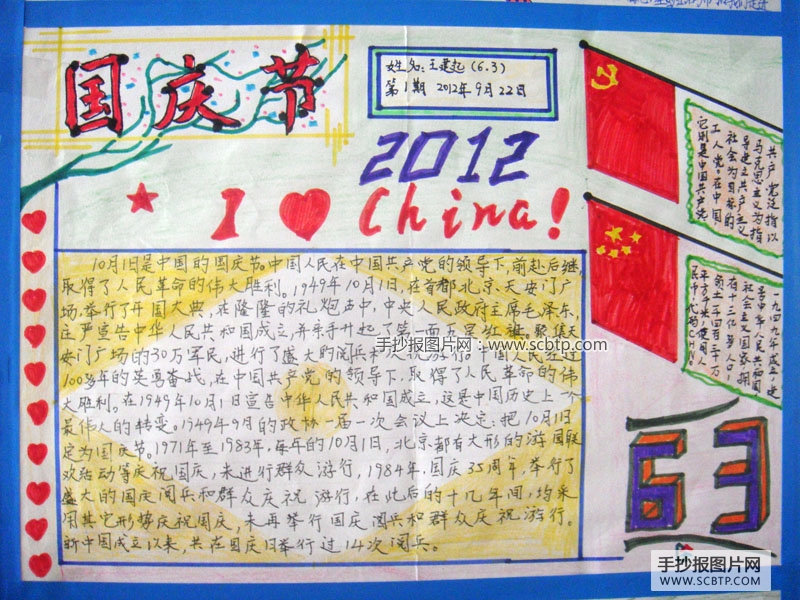 国庆节
姓名:王建起(6.3)
第1期 2012年9月22日
2012
I China!
10月1日是中国的国庆节。中国人民在中国共产党的领导下,前赴后继,
取得了人民革命的伟大胜利。1949年10月1日,在首都北京、天安门广
场,举行了开国大典,在隆隆的礼炮声中,中央人民政府主席毛泽东,
庄严宣告中华人民共和国成立,并亲手升起了第一面五星红旗。聚集天
安门广场的30万军民,进行了盛大的阅兵和
中国人民经过
100多年的英勇奋战,在中国共产党的领导下,取得了人民革命的伟
大胜利。在1949年10月1日宣告中华人民共和国成立,这是中国历史上一个
最伟人的转变。1949年9月的政协一届一次会议上决定:把10月1日
定为国庆节。1971年至1983年,每年的10月1日,北京都有大形的游园联
欢活动等庆祝国庆,未进行群众游行,1984年,国庆35周年,举行了
盛大的国庆阅兵和群众庆祝游行,在此后的十几年间,均采
用其它形势庆祝国庆,未再举行国庆阅兵和群众庆祝游行。
新中国成立以来,共在国庆日举行过14次阅兵。
共产党泛指以
马克思主义为指
导建立共产主义
社会为目标的
工人党。在中国
它则是中国共产党
一九四九年成立,是
社会主义国家,拥
有十三亿多人口,
63
手抄报图片网:www.scbtp.com
手抄报图片网
WWW.SCBTP.COM